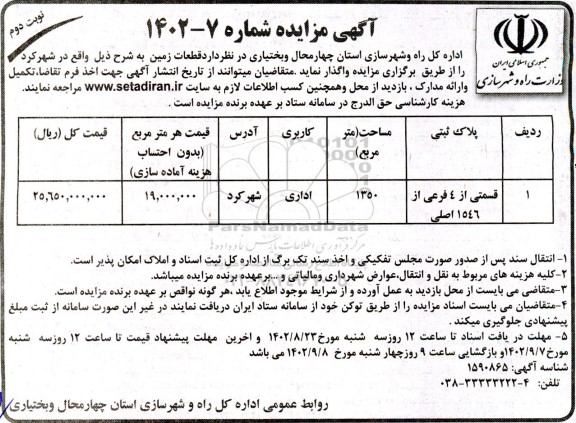 نوبت دوم
آگهی مزایده شماره ۷-۱۴۰۲
جمهوری اسلامی ایران
وزارت راه و شهرسازی
اداره کل راه وشهرسازی استان چهارمحال وبختیاری در نظرداردقطعات زمین به شرح ذیل واقع در شهرکرد
را از طریق برگزاری مزایده واگذار نماید .متقاضیان میتوانند از تاریخ انتشار آگهی جهت اخذ فرم تقاضا،تکمیل
وارائه مدارک ، بازدید از محل وهمچنین کسب اطلاعات لازم به سایت www.setadiran.ir مراجعه نمایند.
هزینه کارشناسی حق الدرج در سامانه ستاد بر عهده برنده مزایده است .
ردیف پلاک ثبتی مساحت(متر مربع) کاربری آدرس قیمت هر متر مربع (بدون احتساب هزینه آماده سازی) قیمت کل (ریال)
۱ قسمتی از ٤ فرعی از ۱۵٤٦ اصلی ۱۳۵۰ اداری شهرکرد ۱۹,۰۰۰,۰۰۰ ۲۵,٦۵۰,۰۰۰,۰۰۰
ParsNamadData
۱- انتقال سند پس از صدور صورت مجلس تفکیکی و اخذ سند تک برگ از اداره کل ثبت اسناد و املاک امکان پذیر است.
۲-کلیه هزینه های مربوط به نقل و انتقال،عوارض شهرداری ومالیاتی و ...برعهده برنده مزایده میباشد.
۳-متقاضی می بایست از محل بازدید به عمل آورده و از شرایط موجود اطلاع یابد ،هر گونه نواقص بر عهده برنده مزایده است.
٤-متقاضیان می بایست اسناد مزایده را از طریق توکن خود از سامانه ستاد ایران دریافت نمایند در غیر این صورت سامانه از ثبت مبلغ
پیشنهادی جلوگیری میکند .
۵- مهلت در یافت اسناد تا ساعت ۱۲ روزسه شنبه مورخ۱۴۰۲/۸/۲۳ و اخرین مهلت پیشنهاد قیمت تا ساعت ۱۲ روزسه شنبه
مورخ ۱۴۰۲/۹/۷و بازگشایی ساعت ۹ روزچهار شنبه مورخ ۱۴۰۲/۹/۸ می باشد
شناسه آگهی: ۱۵۹۰۸٦۵
تلفن: ٤-۳۳۳۳۳۲۲۲-۰۳۸
روابط عمومی اداره کل راه و شهرسازی استان چهارمحال وبختیاری